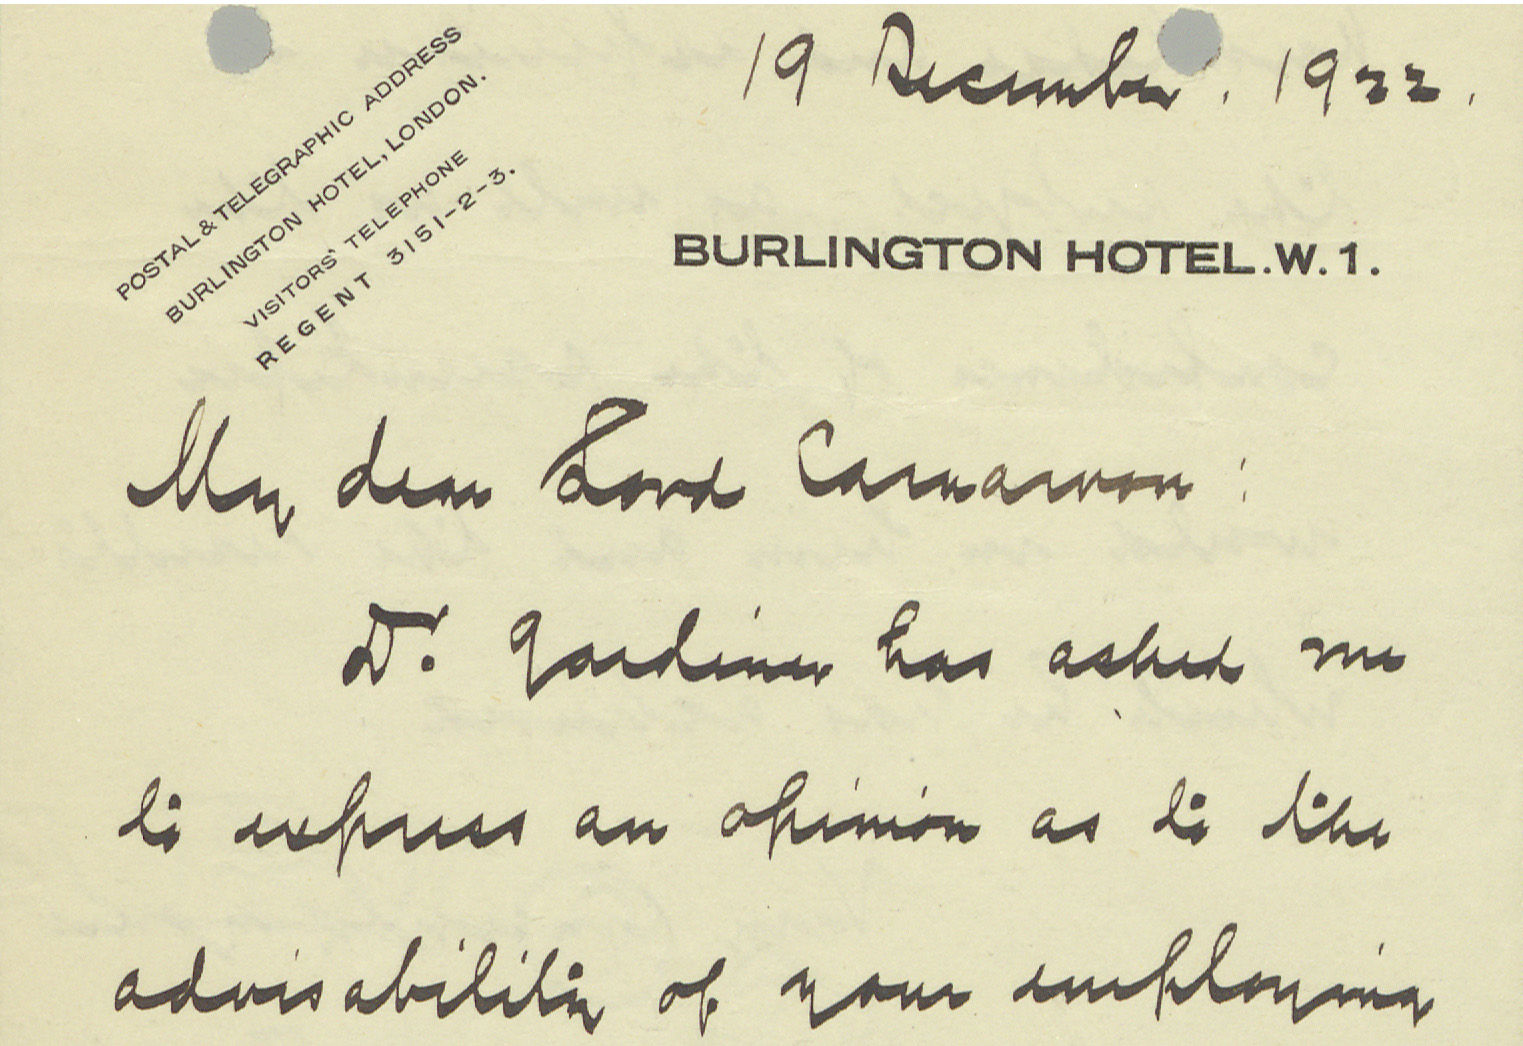 19 December. 1922.
POSTAL & TELEGRAPHIC ADDRESS
BURLINGTON HOTEL, LONDON.
VISITORS' TELEPHONE
REGENT 3151-2-3.
BURLINGTON HOTEL.W.1.
My dear Lord Carnarvon:
Dr. Gardiner has asked me
to express an opinion as to the
advisability of your employing